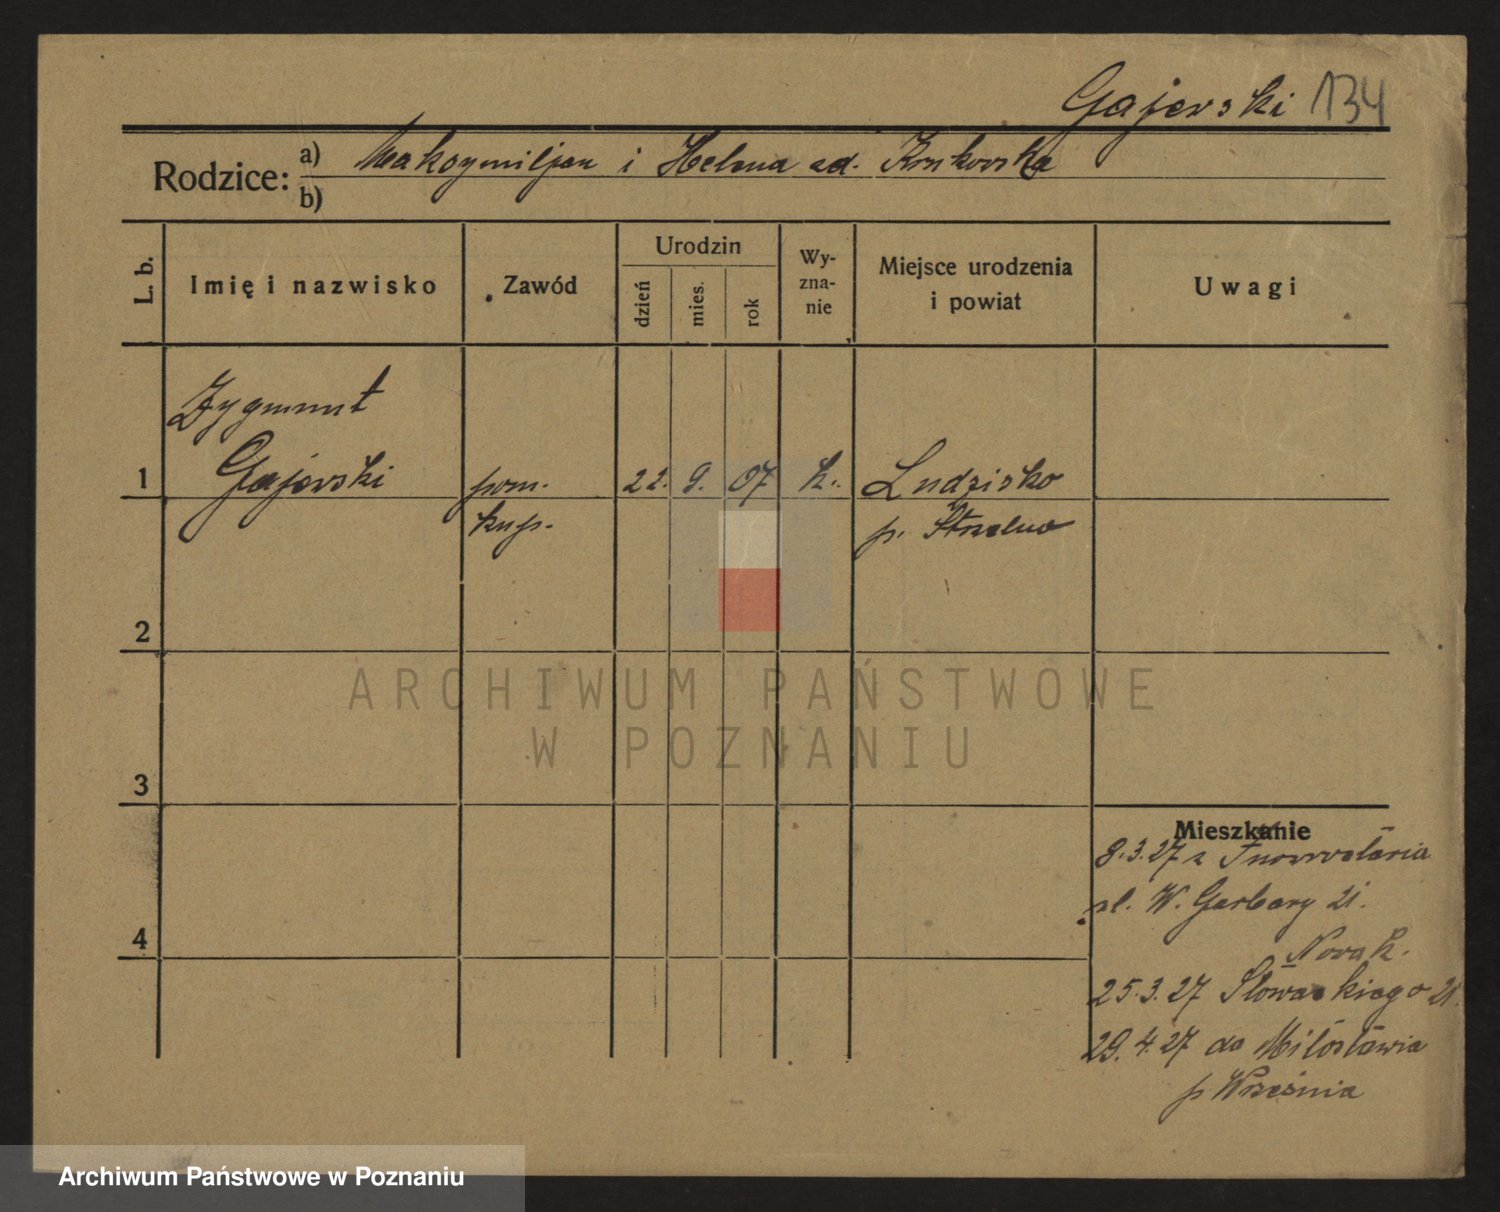 Gajewski 134
Rodzice: a) Maksymiljan i Helena zd. Krukowska
b)
L. b.
Imię i nazwisko
Zawód
Urodzin
dzień
mies.
rok
Wy-
zna-
nie
Miejsce urodzenia
i powiat
Uwagi
Zygmunt
1 Gajewski pom. 22. 9. 07 k. Ludzisko
kup. p. Strzelno
2
ARCHIWUM PAŃSTWOWE
W POZNANIU
3
Mieszkanie
8.3.27 z Inowrocławia
ul. W. Garbary 21.
4
Nowak.
25.3.27 Słowackiego 21.
29.4.27 do Miłosławia
p Września
Archiwum Państwowe w Poznaniu